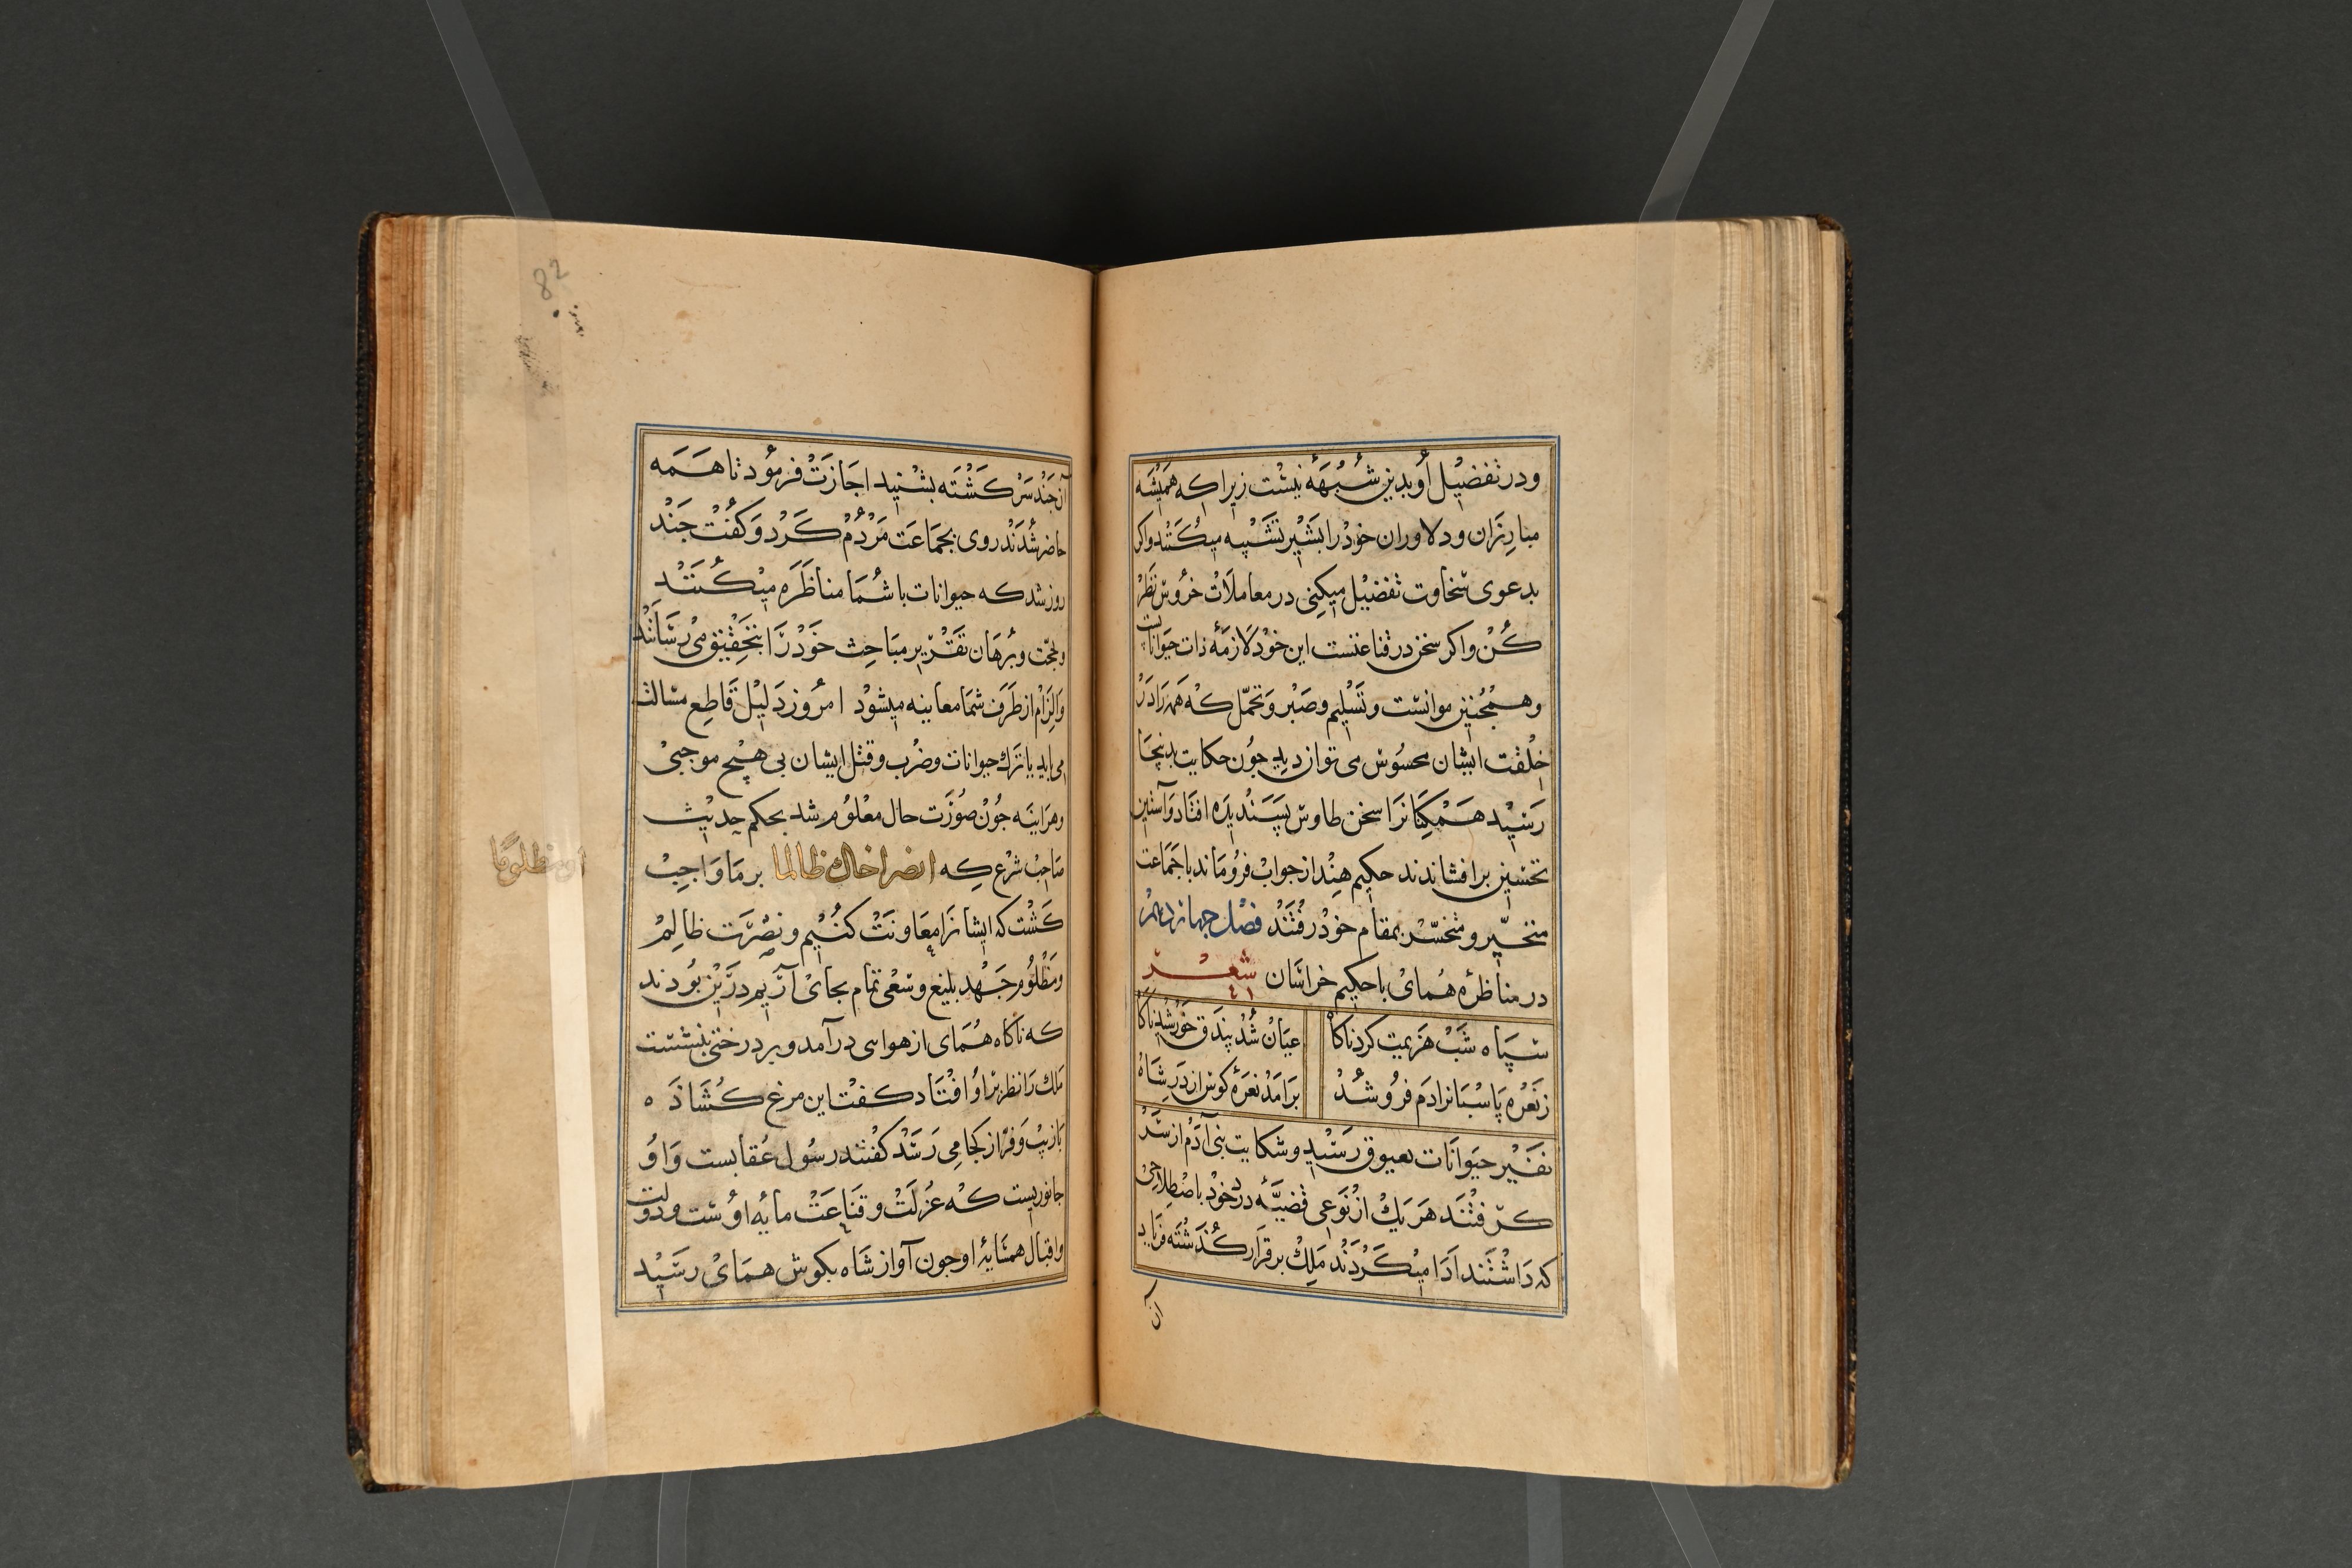 ودر تفضیل او بدین شبهه نیست زیرا که همیشه
مبارزان ودلاوران خود را بشیر تشبیه میکنند واکر
بدعوی سخاوت تفضیل میکنی در معاملات خروس نظر
کن واکر سخن در قناعتست این خود لازمه ذات حیواناتست
وهمچنین موانست وتسلیم وصبر وتحمل که همه را در
خلقت ایشان محسوس می توان دید جون حکایت بدینجا
رسید همکنانرا سخن طاوس پسندیده افتاد وآستین
تحسین برافشاندند حکیم هند از جواب فروماند با جماعت
متحیر ومتحسر بمقام خود رفتند فصل جهاردهم
در مناظره همای با حکیم خراسان شعر
سپاه شب هزیمت کرد ناکاه عیان شد بیدق خورشید ناکاه
ز نعره پاسبانرا دم فرو شد برامد نعره کوس از در شاه
نفیر حیوانات بعیوق رسید وشکایت بنی آدم از سر
کرفتند هر یک از نوعی قضیه درد خود باصطلاحی
که داشتند ادا میکردند ملک بر قرار کذشته فریاد
آن
82
آن جند سرکشته بشنید اجازت فرمود تا همه
حاضر شدند روی بجماعت مردم کرد وکفت جند
روز شد که حیوانات با شما مناظره میکنند
وبحجت وبرهان تقریر مباحث خود را بتحقیق می رسانند
والزام از طرف شما معاینه میشود امروز دلیل قاطع مسالت
می باید یا ترک حیوانات وضرب وقتل ایشان بی هیچ موجبی
وهراینه جون صورت حال معلوم شد بحکم حدیث
صاحب شرع که انصر اخاک ظالما بر ما واجب
او مظلوما
کشت که ایشانرا معاونت کنیم ونصرت ظالم
ومظلوم جهد بلیغ وسعی تمام بجای آریم درین بودند
که ناکاه همای از هوا سی درآمد وبر درختی بنشست
ملک را نظر برو افتاد کفت این مرغ کشاده
باز بب وفر از کجا می رسد کفتند رسول عقابست واو
جانوریست که عزلت وقناعت مایه اوست ودولت
واقبال همسایۀ او جون آواز شاه بکوش همای رسید